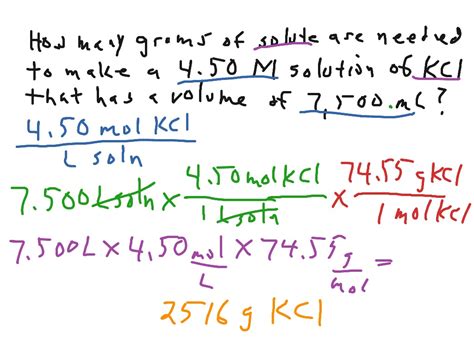 How many grams of solute are needed
to make a 4.50 M solution of KCl
that has a volume of 7,500. mL?
4.50 mol KCl
L soln
7.500 L soln x 4.50 mol KCl / 1 L soln x 74.55 g KCl / 1 mol KCl
7.500L x 4.50 mol/L x 74.55 g/mol =
2516 g KCl